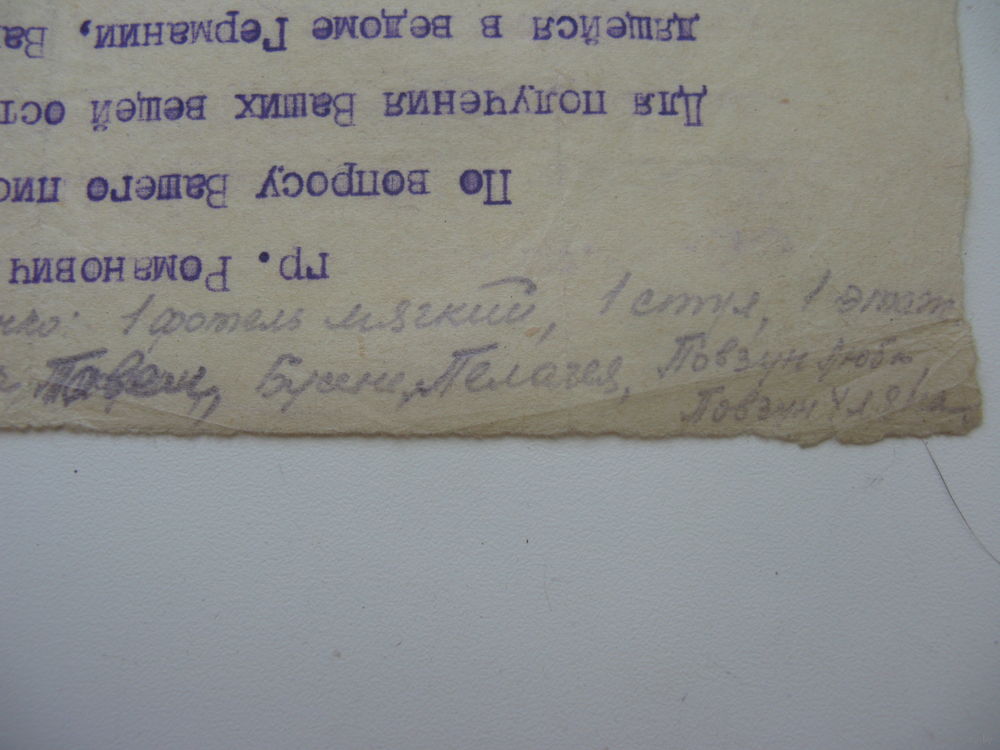 гр. Романович
По вопросу Вашего пис
Для получения Ваших вещей ост
дящейся в ведоме Германии, Ва
нко: 1 фотель мягкий, 1 стул, 1 этаж
Пелагея, Повзун Люба,
Повзун Уляна